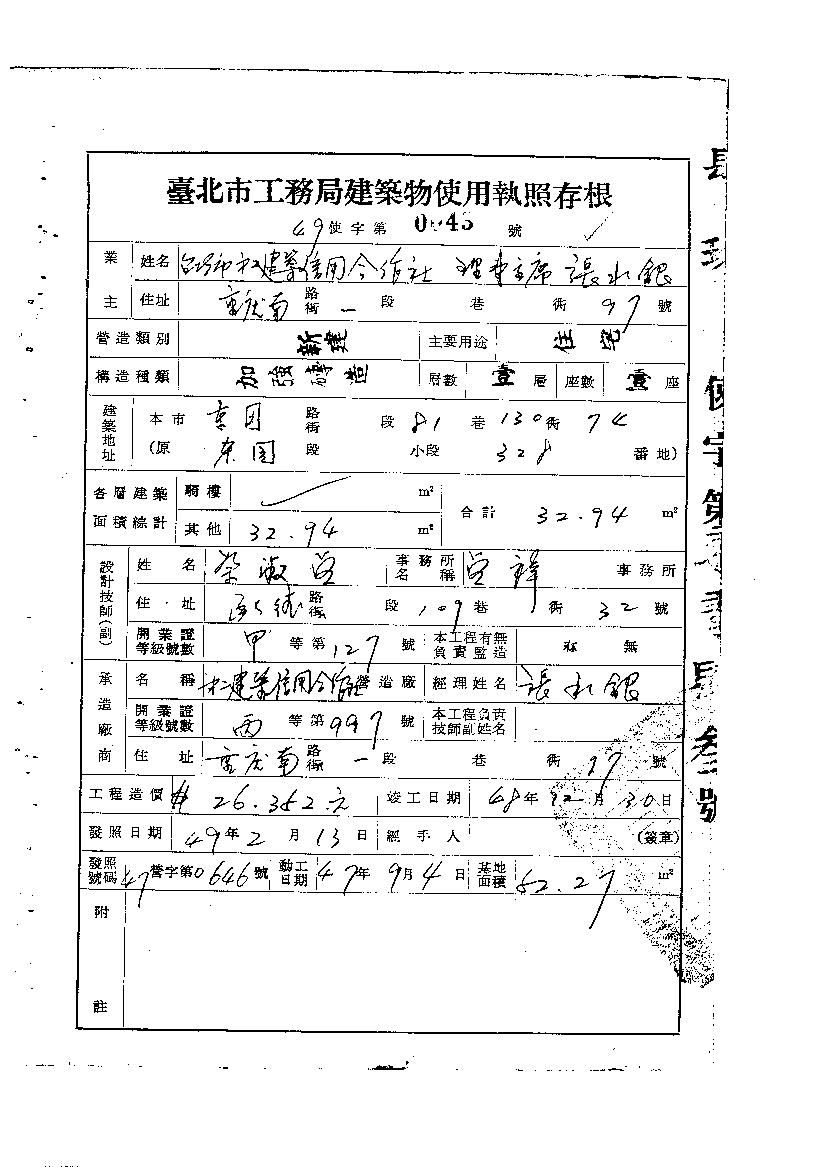 臺北市工務局建築物使用執照存根
49使字第0043號
業主 姓名 建築信用合作社 理事主席 張水銀
住址 重慶南 路街 一 段 巷 衖 97 號
營造類別 新建 主要用途 住宅
構造種類 加強磚造 層數 壹 層 座數 壹 座
建築地址 本市 東園 路街 段 81 巷 130 衖 74
(原 東園 段 小段 328 番地)
各層建築面積綜計 騎樓 m² 合計 32.94 m²
其他 32.94 m²
設計技師(副) 姓名 淑 事務所名稱 祥 事務所
住址 路街 段 109 巷 衖 32 號
開業證等級號數 甲 等第 127 號 本工程有無負責監造 無
承造廠商 名稱 建築信用合作社 營造廠 經理姓名 張水銀
開業證等級號數 丙 等第 997 號 本工程負責技師副姓名
住址 重慶南 路街 一 段 巷 衖 97 號
工程造價 26.352元 竣工日期 48年12月30日
發照日期 49年2月13日 經手人 (簽章)
發照號碼 47營字第0646號 動工日期 47年9月4日 基地面積 52.27 m²
附註
使字第
肆叁號